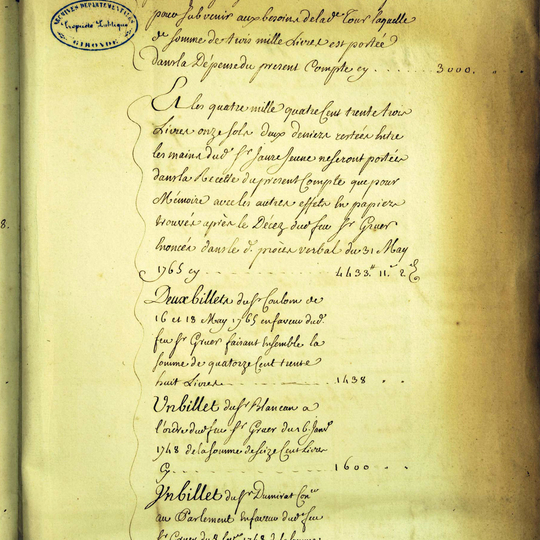 ARCHIVES DEPARTEMENTALES
Propriété Publique
GIRONDE
pour subvenir aux besoins de lad.e Cour laquelle
de somme de trois mille Livres est portée
dans la Dépense du present Compte cy ..... 3000. . . .
Et les quatre mille quatre Cent trente trois
Livres onze sols deux deniers restées Entre
les mains dud. Sr. Jaure Jeune ne seront portées
dans la Recette du present Compte que pour
Mémoire avec les autres effets En papiers
trouvés après le Décez dud. feu Sr. Gruer
Enoncés dans le d. procès verbal du 31 May
1765 cy ............ 4433.# 11.s 2.d
8.
Deux billets du Sr. Coulom de
16 et 18 May 1765 en faveur dud.
feu Sr. Gruer faisant Ensemble la
somme de quatorze Cent trente
huit Livres ............ 1438 . .
Un billet du Sr.
l'ordre dud. feu Sr. Gruer du 16 Janv.r
1748 de la somme de seize Cent Livres
Cy ............ 1600 . .
Un billet du Sr. Dumirat Con.er
au Parlement En faveur dud. feu
Sr. Gruer du 8 1748 de la somme